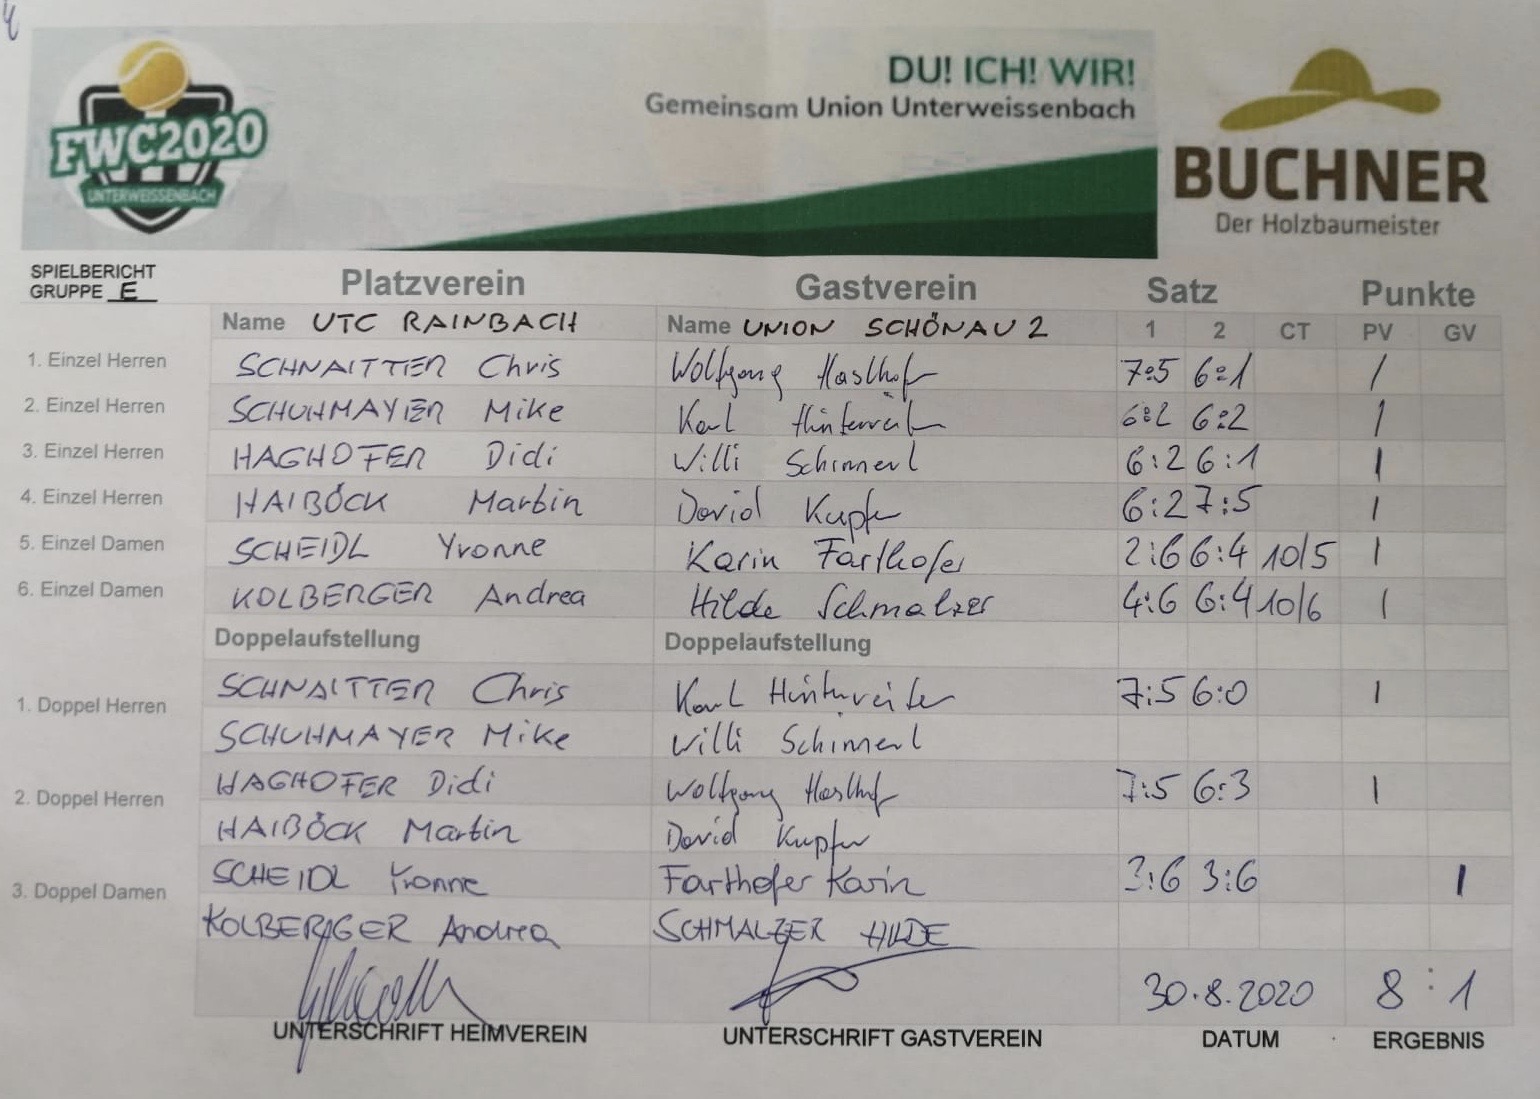 FWC2020
UNTERWEISSENBACH
DU! ICH! WIR!
Gemeinsam Union Unterweissenbach
BUCHNER
Der Holzbaumeister
SPIELBERICHT
GRUPPE E
Platzverein Gastverein Satz Punkte
Name UTC RAINBACH Name UNION SCHÖNAU 2 1 2 CT PV GV
1. Einzel Herren SCHNAITTER Chris Wolfgang Haslhof 7:5 6:1 1
2. Einzel Herren SCHUHMAYER Mike Karl Hinterreit 6:2 6:2 1
3. Einzel Herren HAGHOFER Didi Willi Schimerl 6:2 6:1 1
4. Einzel Herren HAIBÖCK Martin David Kupfer 6:2 7:5 1
5. Einzel Damen SCHEIDL Yvonne Karin Farthofer 2:6 6:4 10/5 1
6. Einzel Damen KOLBERGER Andrea Hilde Schmalzer 4:6 6:4 10/6 1
Doppelaufstellung Doppelaufstellung
1. Doppel Herren SCHNAITTER Chris Karl Hinterreiter 7:5 6:0 1
SCHUHMAYER Mike Willi Schimerl
2. Doppel Herren HAGHOFER Didi Wolfgang Haslhof 7:5 6:3 1
HAIBÖCK Martin David Kupfer
3. Doppel Damen SCHEIDL Yvonne Farthofer Karin 3:6 3:6 1
KOLBERGER Andrea SCHMALZER HILDE
30.8.2020 8:1
UNTERSCHRIFT HEIMVEREIN UNTERSCHRIFT GASTVEREIN DATUM ERGEBNIS